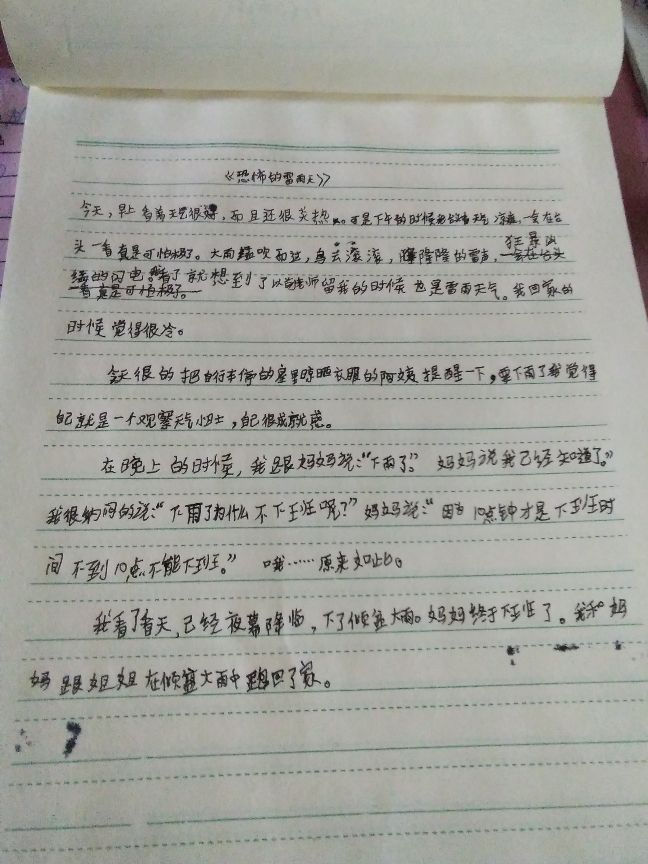 《恐怖的雷雨天》
今天，早上看着天气很好，而且还很炎热。可是下午的时候天气凉，一会在台
头一看真是可怕极了。大雨猛吹而过，乌云滚滚，隆隆的雷声，一会在台头
狂暴凶
猛的闪电。看了就想到了以前老师留我的时候也是雷雨天气。我回家的
一看真是可怕极了。
时候觉得很冷。
今天很的把自行车停的晾晒衣服的阿姨提醒一下，要下雨了我觉得
自己就是一个观察天气小士，自己很成就感。
在晚上的时候，我跟妈妈说：“下雨了”。妈妈说我已经知道了。”
我很纳闷的说：“下雨了为什么不下班呢？”妈妈说：“因为10点钟才是下班时
间不到10点不能下班。” 哦……原来如此。
我看了看天，已经夜幕降临，下了倾盆大雨。妈妈终于下班了。我和妈
妈跟姐姐在倾盆大雨中跑回了家。